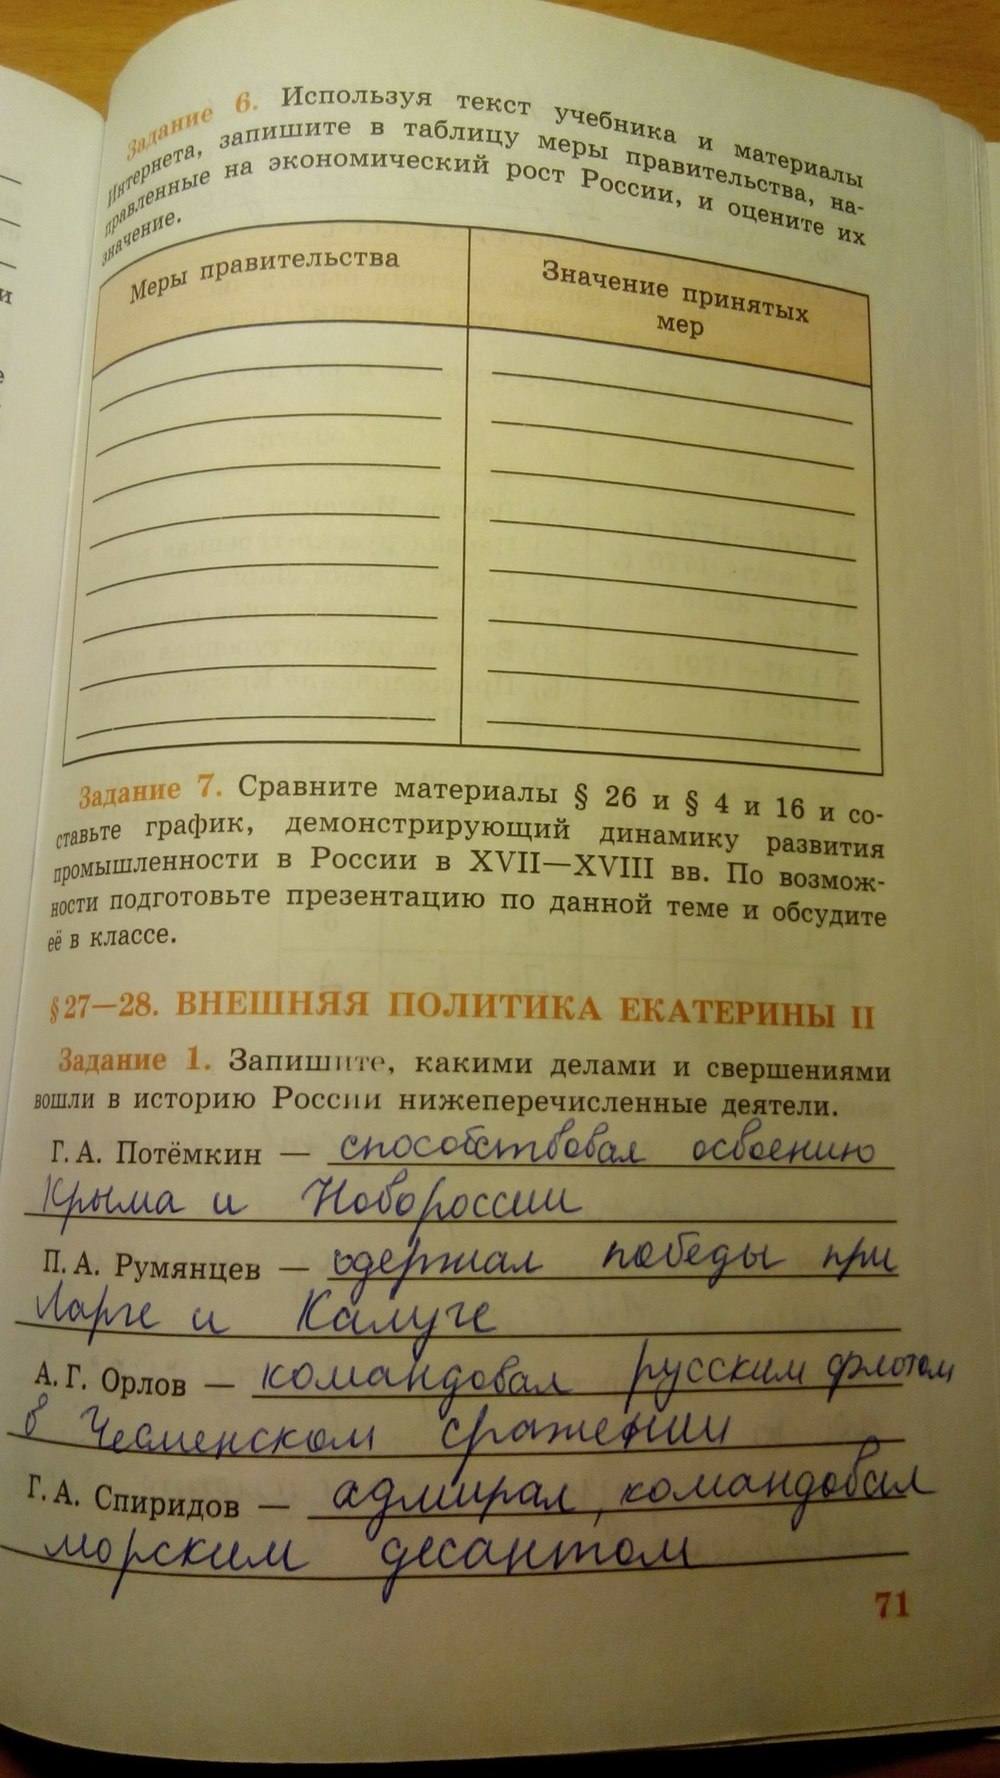 Задание 6. Используя текст учебника и материалы
Интернета, запишите в таблицу меры правительства, на-
правленные на экономический рост России, и оцените их
значение.
Меры правительства
Значение принятых
мер
Задание 7. Сравните материалы § 26 и § 4 и 16 и со-
ставьте график, демонстрирующий динамику развития
промышленности в России в XVII—XVIII вв. По возмож-
ности подготовьте презентацию по данной теме и обсудите
её в классе.
§ 27—28. ВНЕШНЯЯ ПОЛИТИКА ЕКАТЕРИНЫ II
Задание 1. Запишите, какими делами и свершениями
вошли в историю России нижеперечисленные деятели.
Г. А. Потёмкин — способствовал освоению
Крыма и Новороссии
П. А. Румянцев — одержал победы при
Ларге и Калуге
А. Г. Орлов — командовал русским флотом
в Чесменском сражении
Г. А. Спиридов — адмирал, командовал
морским десантом
71